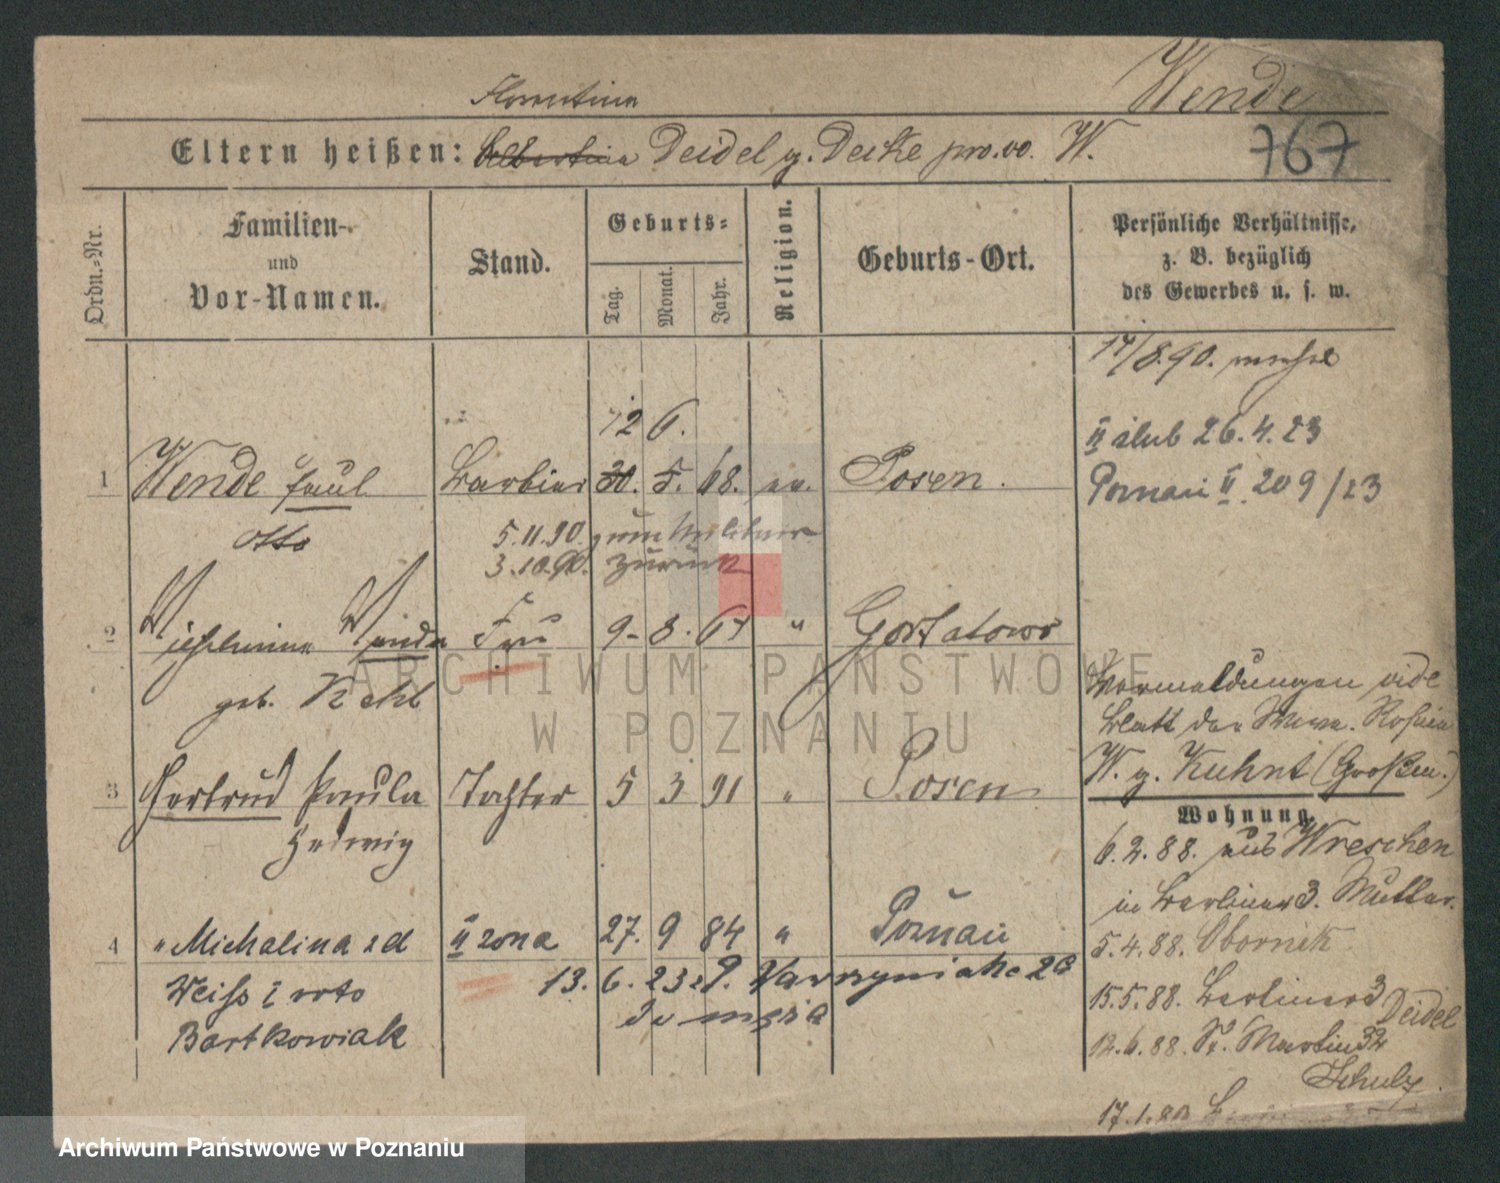 Wende
767
Florentine
Eltern heißen: Albertine Deidel g. Deike pro. vo. W.
Ordn.=Nr.
Familien-
und
Vor-Namen.
Stand.
Geburts=
Tag.
Monat.
Jahr.
Religion.
Geburts-Ort.
Persönliche Verhältnisse,
z. B. bezüglich
des Gewerbes u. s. w.
17/8.90.
12 6.
II ślub 26.4.23
Poznań II 209/23
1 Wende Paul Barbier 30. 5. 68. ev. Posen.
Otto
5.11.90. zum Militair
3.10.90. zurück
2 Wilhelmine Wanda Frau 9- 8. 67 " Gortatowo
geb. Kehl
Vormeldungen vide
Blatt der Wwe. Rosina
W. g. Kuhnt (Großm.)
3 Gertrud Paula Tochter 5 3 91 " Posen
Hedwig
Wohnung.
6.2.88. aus Wreschen
in Berliner 3. Mutter.
4 " Michalina zd II żona 27. 9 84 " Poznań
Weiss I voto
Bartkowiak
13. 6. 23 z P. Wawrzyniaka 26
do męża
5.4.88. Obornik
15.5.88. Berliner 3
Deidel
12.6.88. St. Martin 32
Schulz.
17.1.
ARCHIWUM PAŃSTWOWE
W POZNANIU
Archiwum Państwowe w Poznaniu